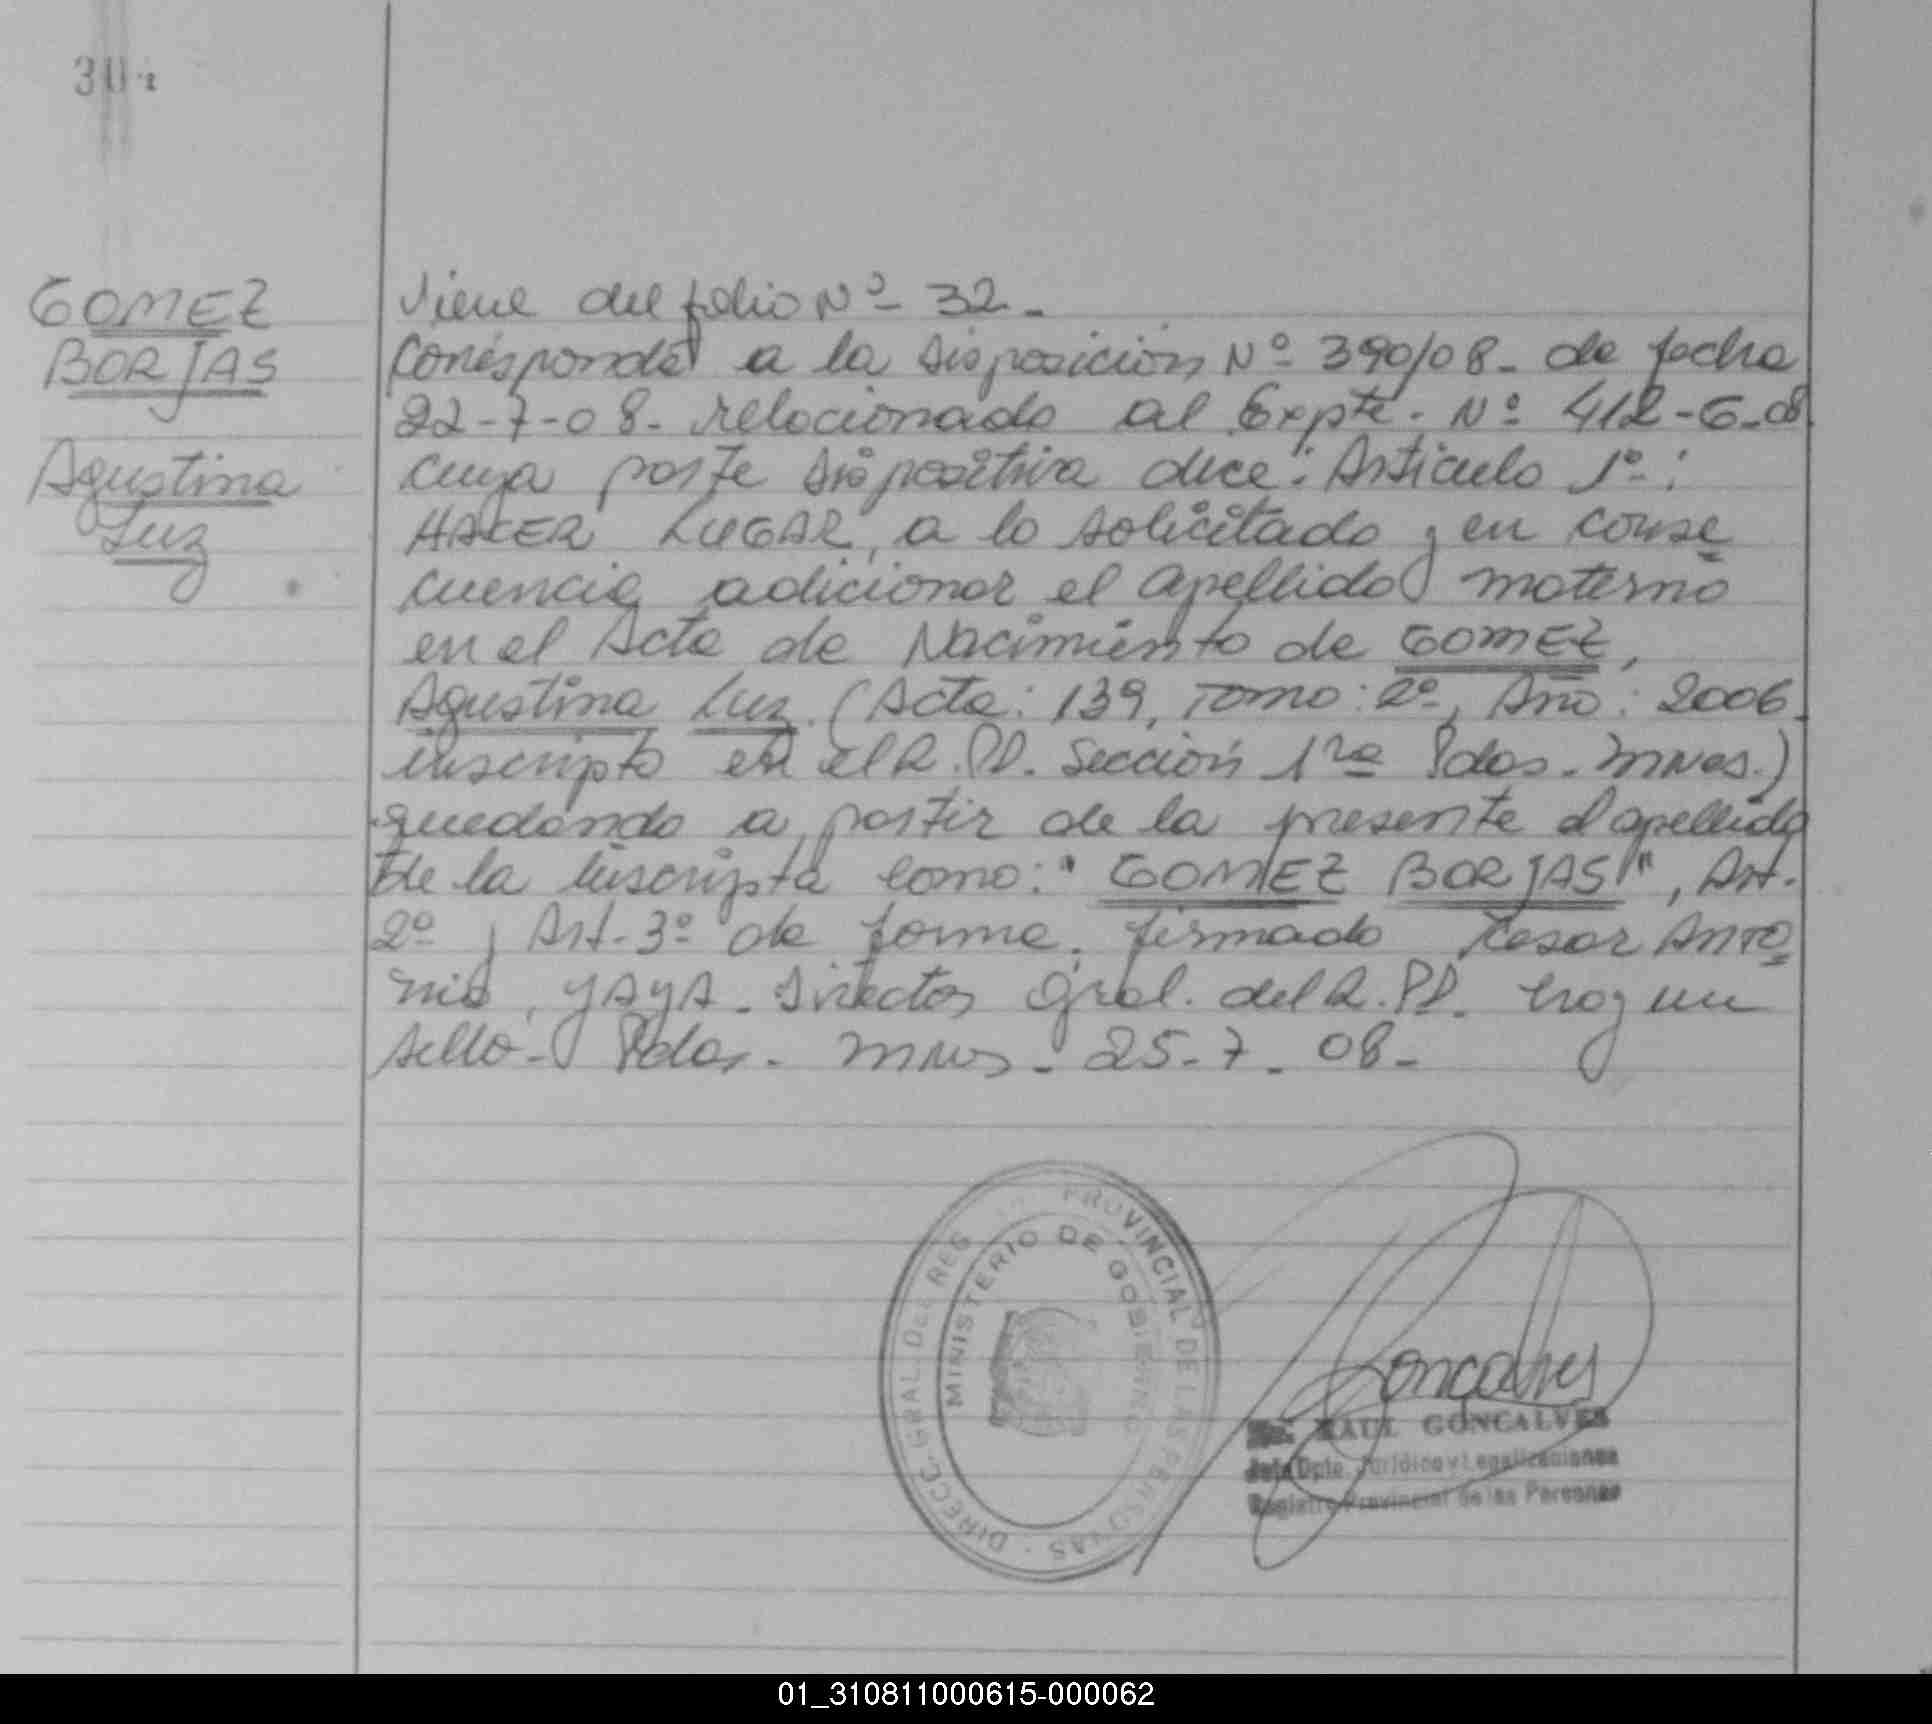 GOMEZ
BORJAS
Agustina
Luz
Viene del folio Nº 32.
Corresponde a la Disposición Nº 390/08. de fecha
22-7-08. relacionado al Expte. Nº 412-G-08
cuya parte dispositiva dice: Artículo 1º:
HACER LUGAR, a lo solicitado y en conse
cuencia adicionar el apellido materno
en el Acta de Nacimiento de GOMEZ,
Agustina Luz. (Acta: 139, Tomo: 2º, Año: 2006.
inscripto en el R.PP. Sección 1ra Pdas. Mnes.)
quedando a partir de la presente el apellido
de la inscripta como: "GOMEZ BORJAS", Art.
2º y Art. 3º de forma. firmado Cesar Anto
nio YAYA. Director Gral. del R.PP. hay un
sello. Pdas. Mnes. 25-7-08-
DIRECC. GRAL. DEL REG PROVINCIAL DE LAS PERSONAS
MINISTERIO DE GOBIERNO
Goncalves
RAUL GONCALVES
Jefe Dpto. Jurídico y Legalizaciones
Registro Provincial de las Personas
01_310811000615-000062